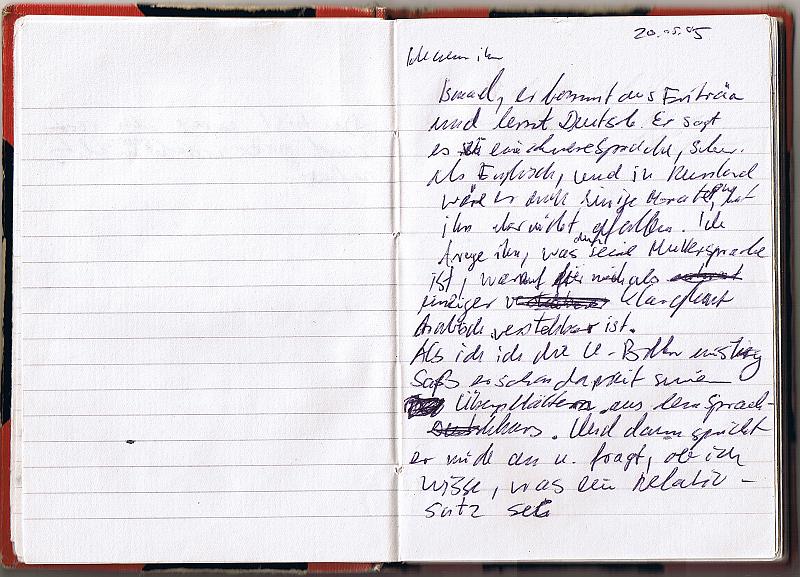 20.05.05
Ich nenn ihn
Ismael, er kommt aus Eritrea
und lernt Deutsch. Er sagt
es sei eine schwere Sprache, schw.
als Englisch, und in Russland
wäre er auch einige Monate, hat
ihm aber nicht gefallen. Ich
frage ihn, was denn seine Muttersprache
ist, worauf für mich als
einziger Klangfont
Arabisch verstehbar ist.
Als ich ich die U-Bahn einstieg
saß er schon da mit seinen
Übungsblättern aus dem Sprach-
kurs. Und dann spricht
er mich an u. fragt, ob ich
wisse, was ein Relativ-
satz sei